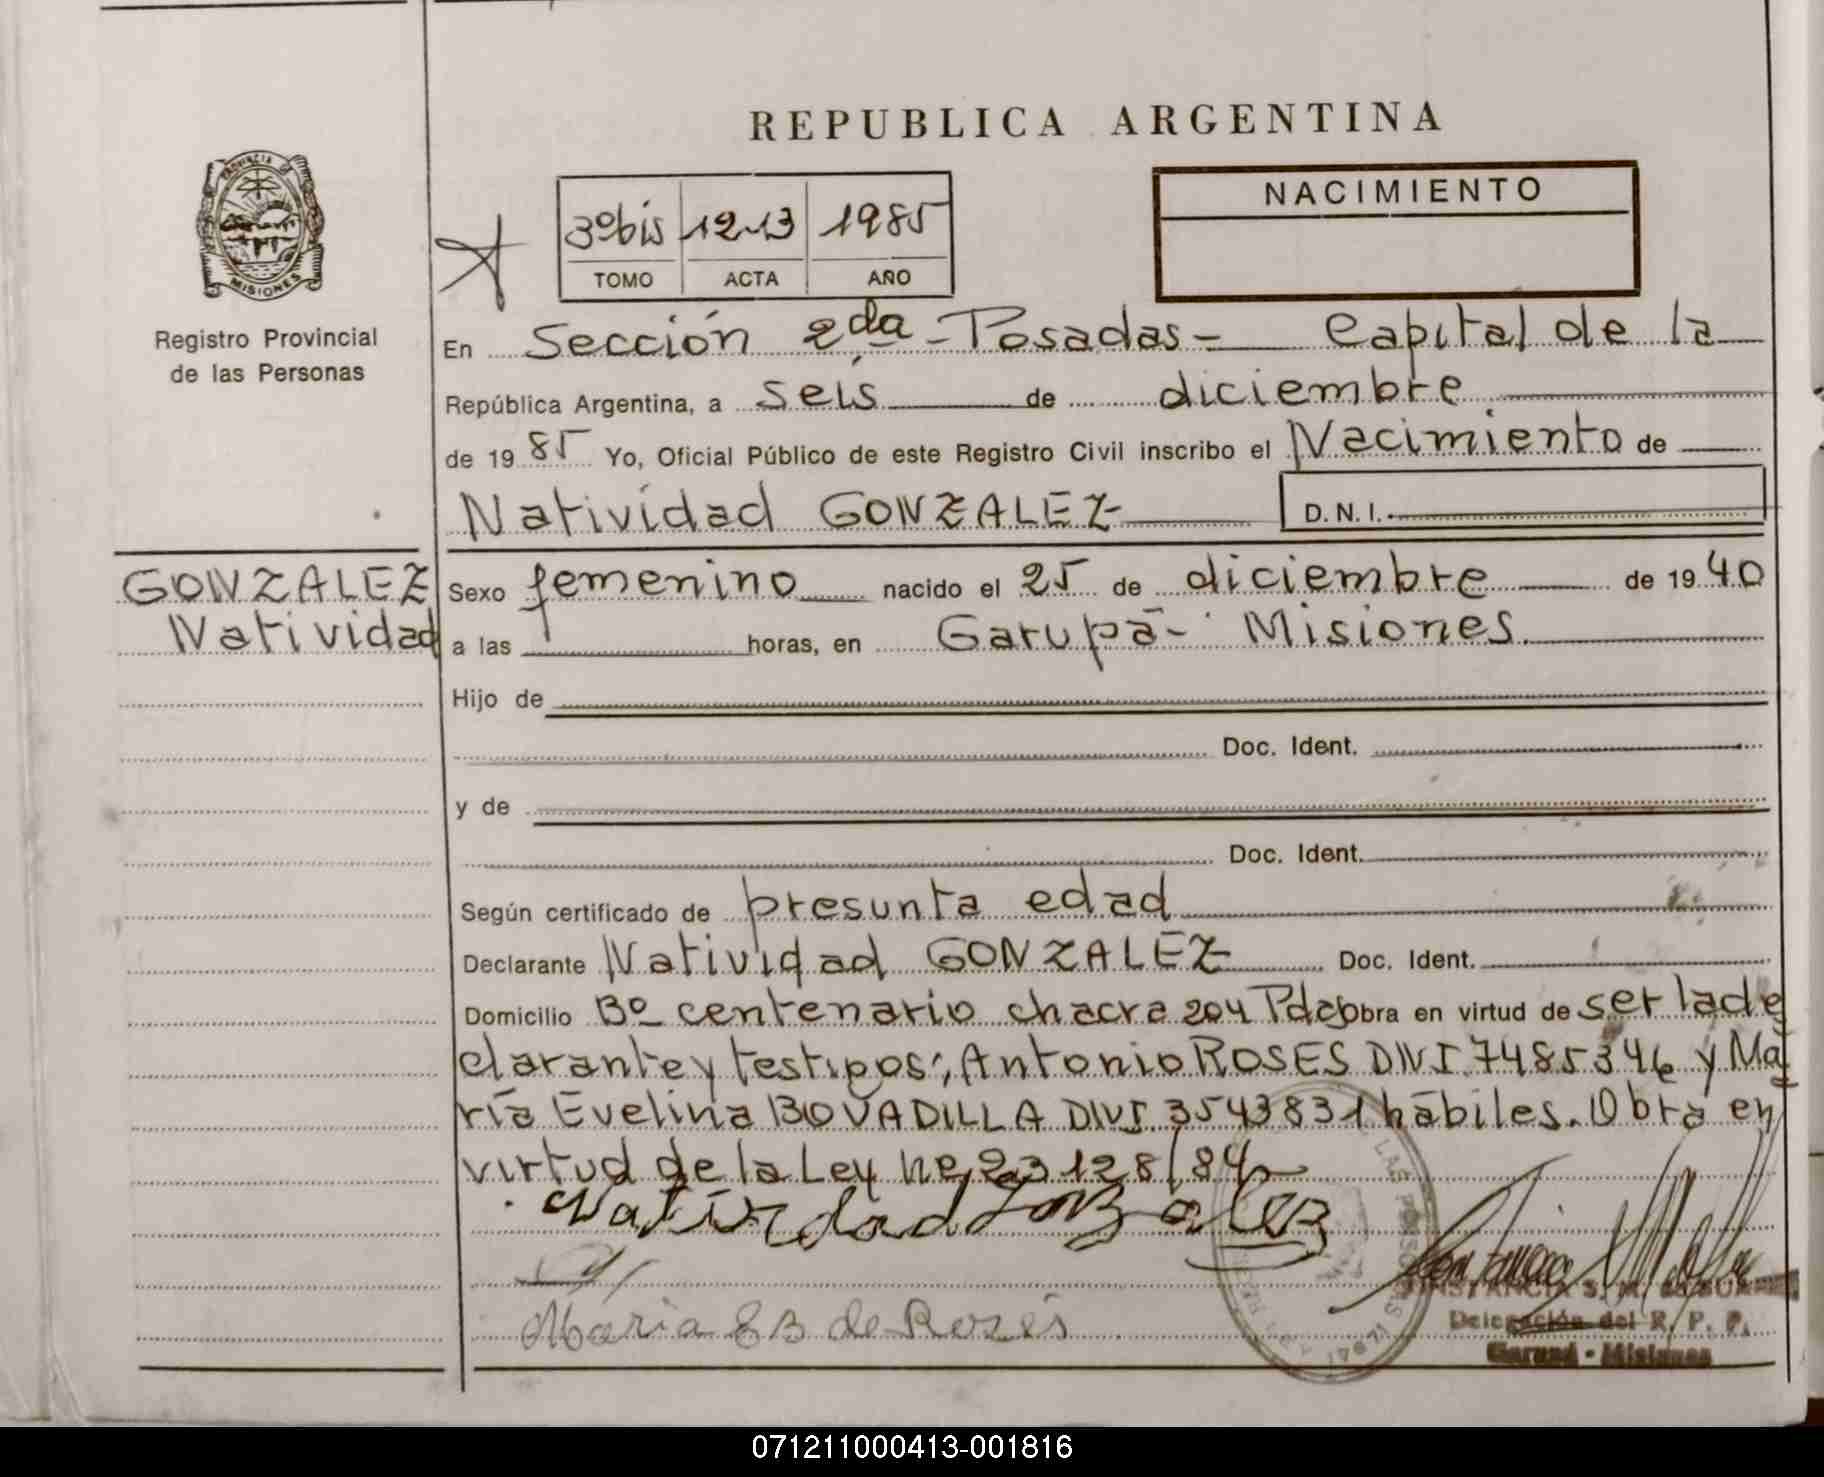 REPUBLICA ARGENTINA
PROVINCIA DE
MISIONES
Registro Provincial
de las Personas
3º bis 1213 1985
TOMO ACTA AÑO
NACIMIENTO
En Sección 2da - Posadas - Capital de la
República Argentina, a seis de diciembre
de 1985 Yo, Oficial Público de este Registro Civil inscribo el Nacimiento de
Natividad GONZALEZ D.N.I.
GONZALEZ
Natividad
Sexo femenino nacido el 25 de diciembre de 1940
a las horas, en Garupá - Misiones.
Hijo de
Doc. Ident.
y de
Doc. Ident.
Según certificado de presunta edad
Declarante Natividad GONZALEZ Doc. Ident.
Domicilio Bº centenario chacra 204 Pdas obra en virtud de ser la de
clarante y testigos; Antonio ROSES DNI 7485346 y Ma
ría Evelina BOVADILLA DNI 3543831 hábiles. Obra en
virtud de la Ley Nº 23128/84
Natividad Gonzalez
Maria E B de Roses
CONSTANCIA S.
Delegación del R. P. P.
Garupá - Misiones
071211000413-001816